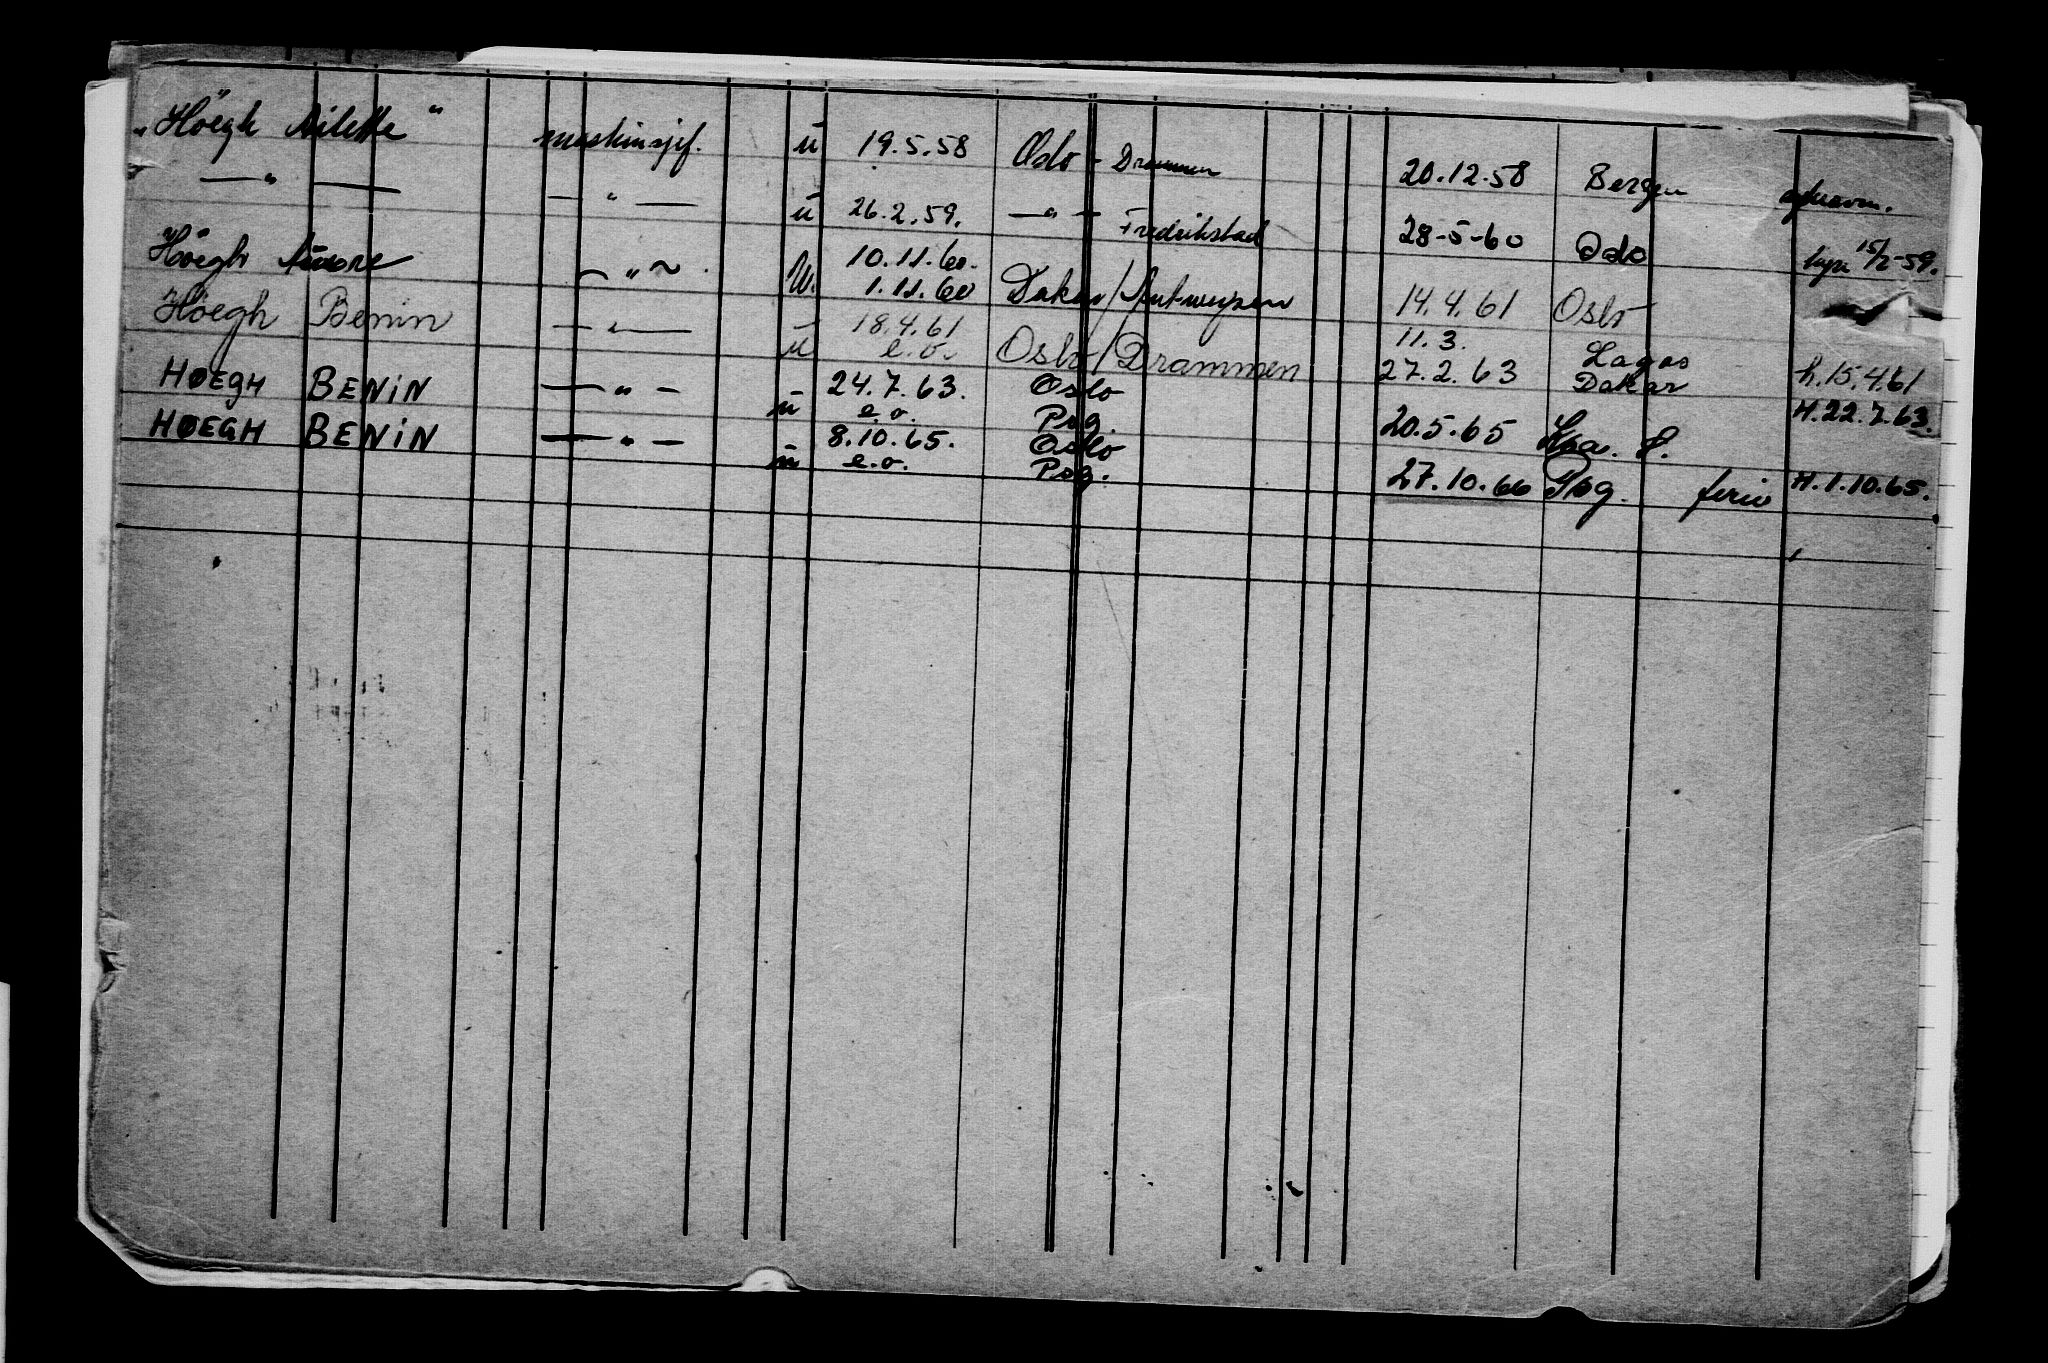 "Höegh Ailette" maskinsjef. u 19.5.58 Oslo - Drammen 20.12.58 Bergen
—"— —"— u 26.2.59. —"— Fredrikstad 28-5-60 Oslo hjm 15/2-59.
Höegh —"— 10.11.60.
W. 1.11.60 Dakar/Antwerpen 14.4.61 Oslo
Höegh Benin —"— u 18.4.61 11.3. Lagos
e.o. Oslo/Drammen 27.2.63 Dakar h.15.4.61
HØEGH BENIN —"— u 24.7.63. Oslo H.22.7.63.
e.o. Psg. 20.5.65
HØEGH BENIN —"— u 8.10.65. Oslo
e.o. Psg. 27.10.66 Psg. ferie H.1.10.65.